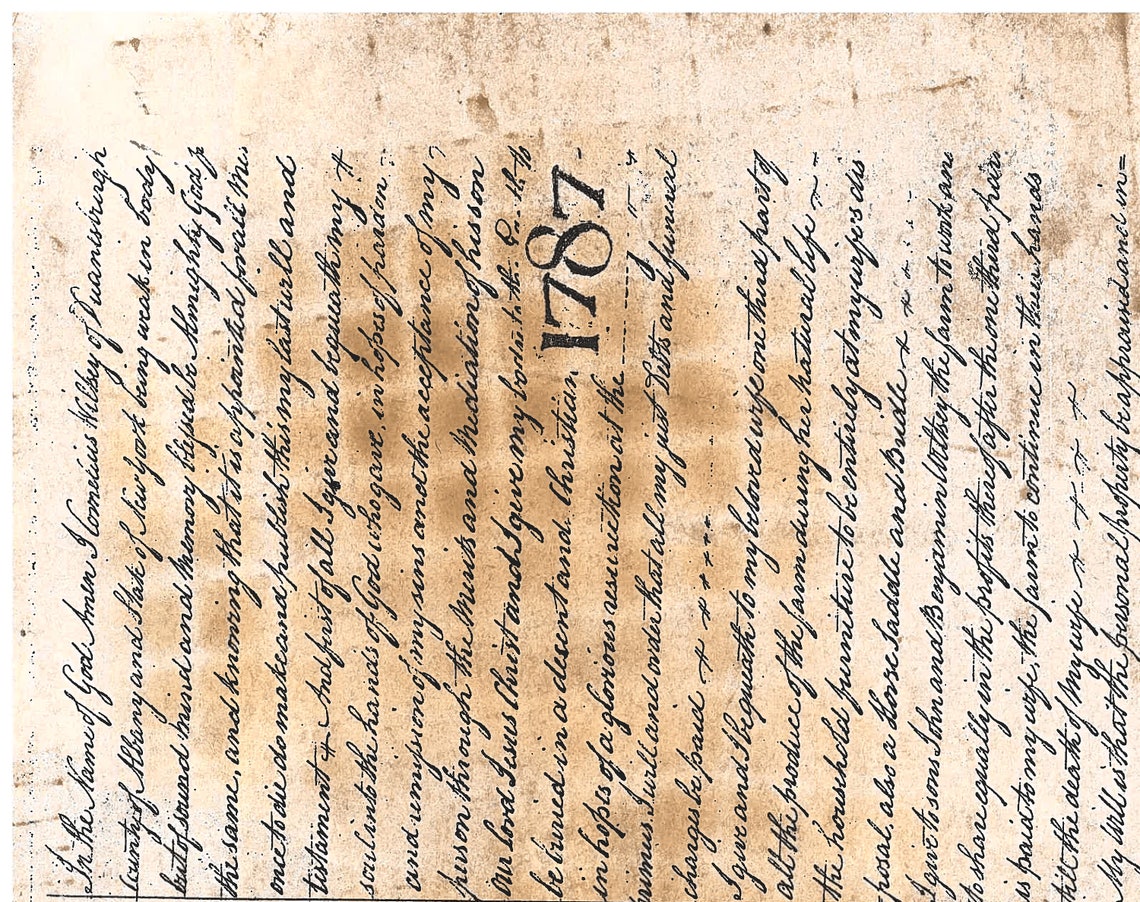 In the Name of God Amen I Cornelius Wilsey of Duanesburgh
County of Albany and State of New York being weak in body
but of sound mind and memory blessed be Almighty God for
the same, and knowing that it is appointed for all Men
once to die do make and publish this my last will and
testament + And first of all I give and bequeath my +
soul into the hands of God who gave, in hopes of pardon
and remission of my sins and the acceptance of my
person through the Merits and Mediation of his son
our lord Jesus Christ and I give my bodie to the to
be buried in a desent and Christian
in hopes of a glorious resurrection at the
primis I will and order that all my just Debts and funeral
charges be paid
I give and I bequeath to my beloved wife one third part of
all the produce of the farm during her natural life
the household furniture to be entirely at my wifes dis
posal, also a Horse Saddle and Bridle
I give to sons John and Benjamin Wiltsey the farm to work and
to share equally in the profits thereof after the one third part
is paid to my wife, the farm to continue in their hands
till the death of My wife
My will is that the personal property be apprised and in=
1787